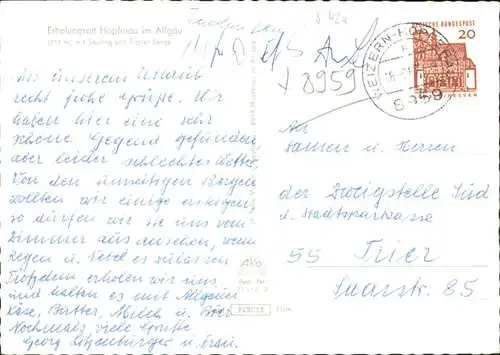 Erholungsort Hopferau im Allgäu
8959
DEUTSCHE BUNDESPOST
20
WEIZERN-HOPFERAU
8959
Aus unserem Urlaub
recht frohe Grüße. Wir
haben hier eine sehr
schöne Gegend gefunden
aber leider schlechtes Wetter.
Von den umseitigen Bergen
wollten wir einige ersteigen,
so dürfen wir sie uns vom
Zimmer aus ansehen, wenn
Regen u. Nebel es zulassen.
Trotzdem erholen wir uns
und halten es mit Allgäuer
Käse, Butter, Milch u. Bier
Nochmals viele Grüße
Georg u. Frau.
An
Damen u. Herren
der Zweigstelle Süd
d. Stadtsparkasse
55 Trier
Saarstr. 85